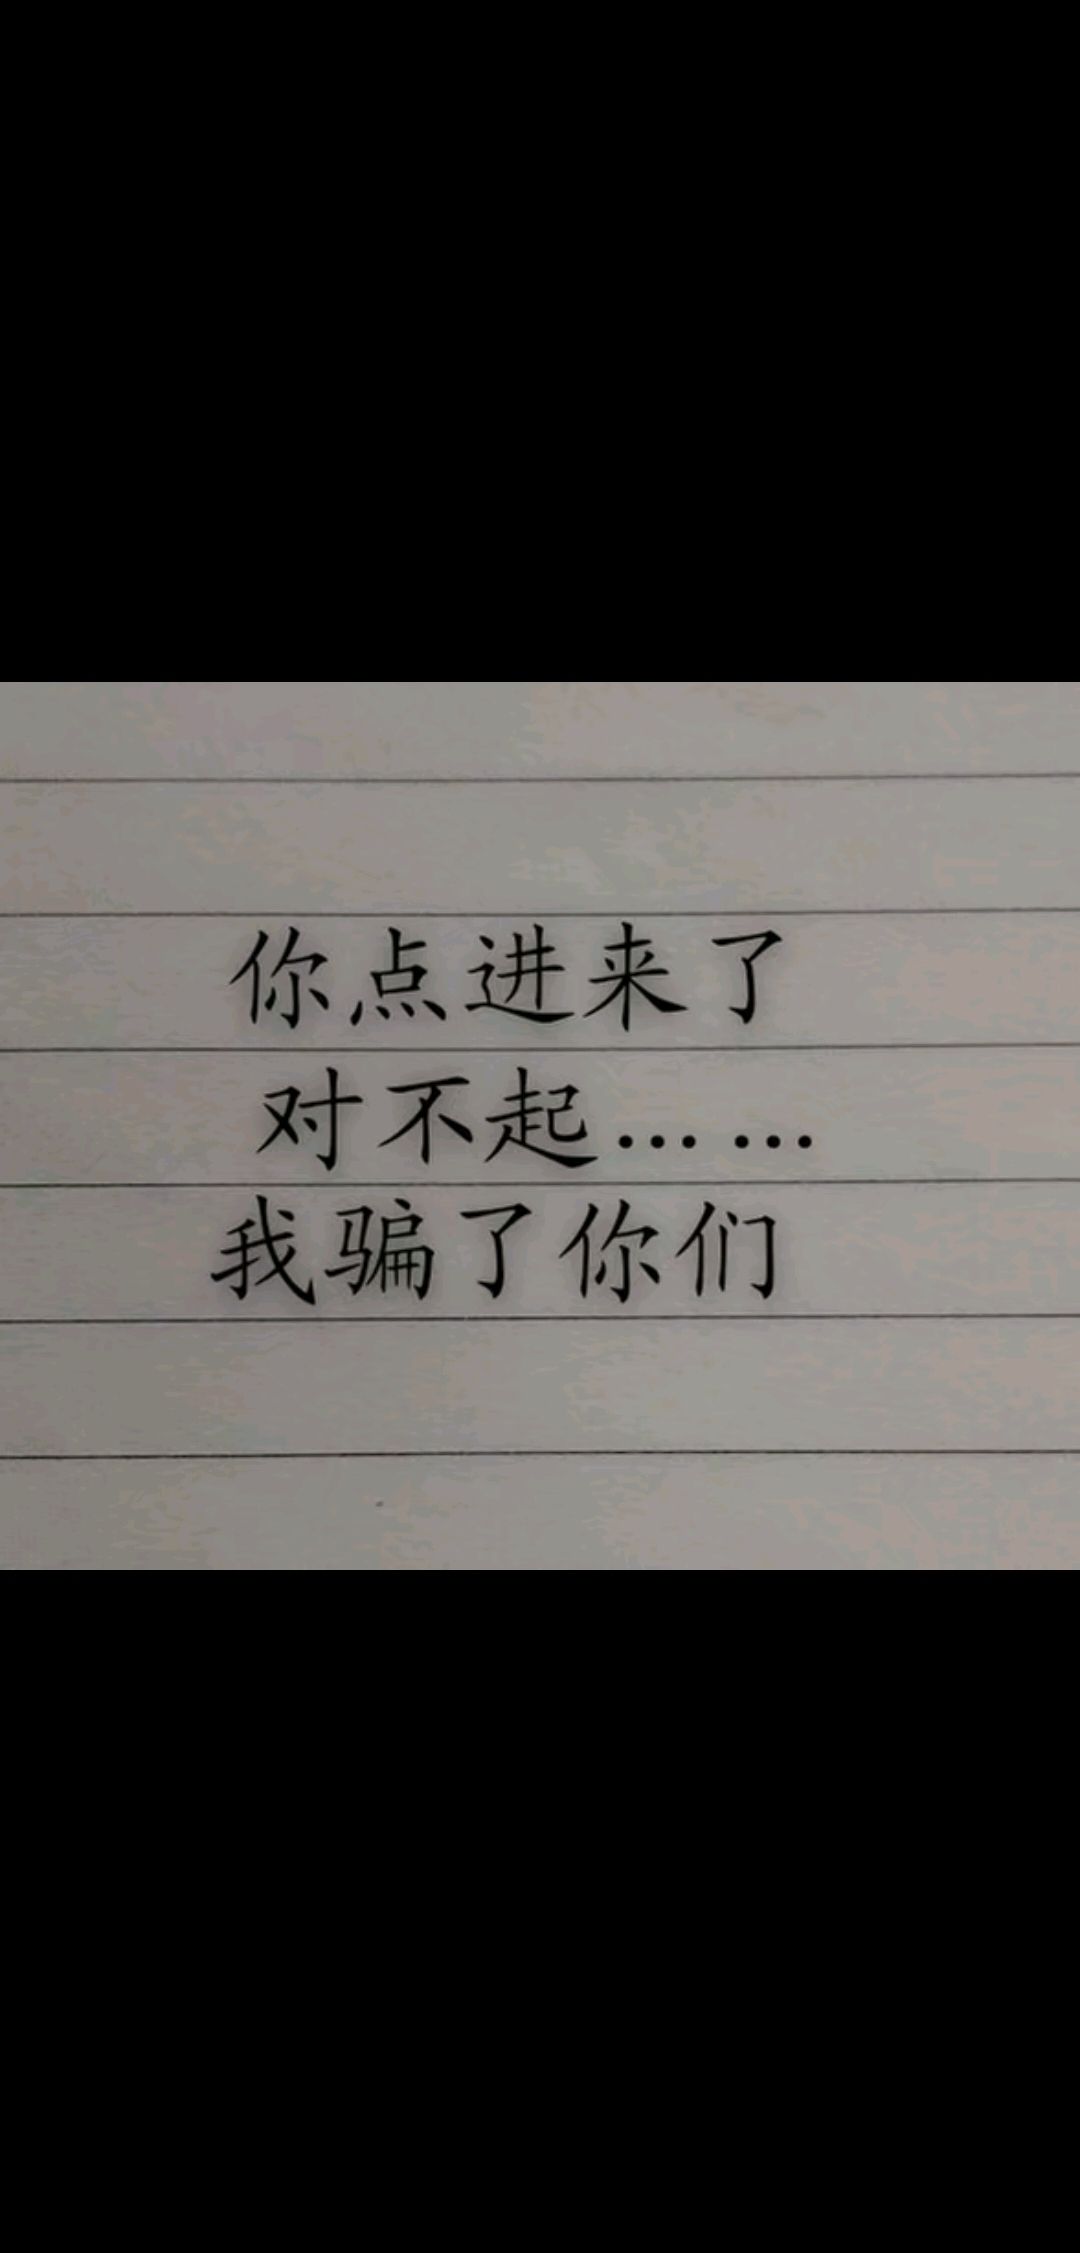 你点进来了
对不起……
我骗了你们